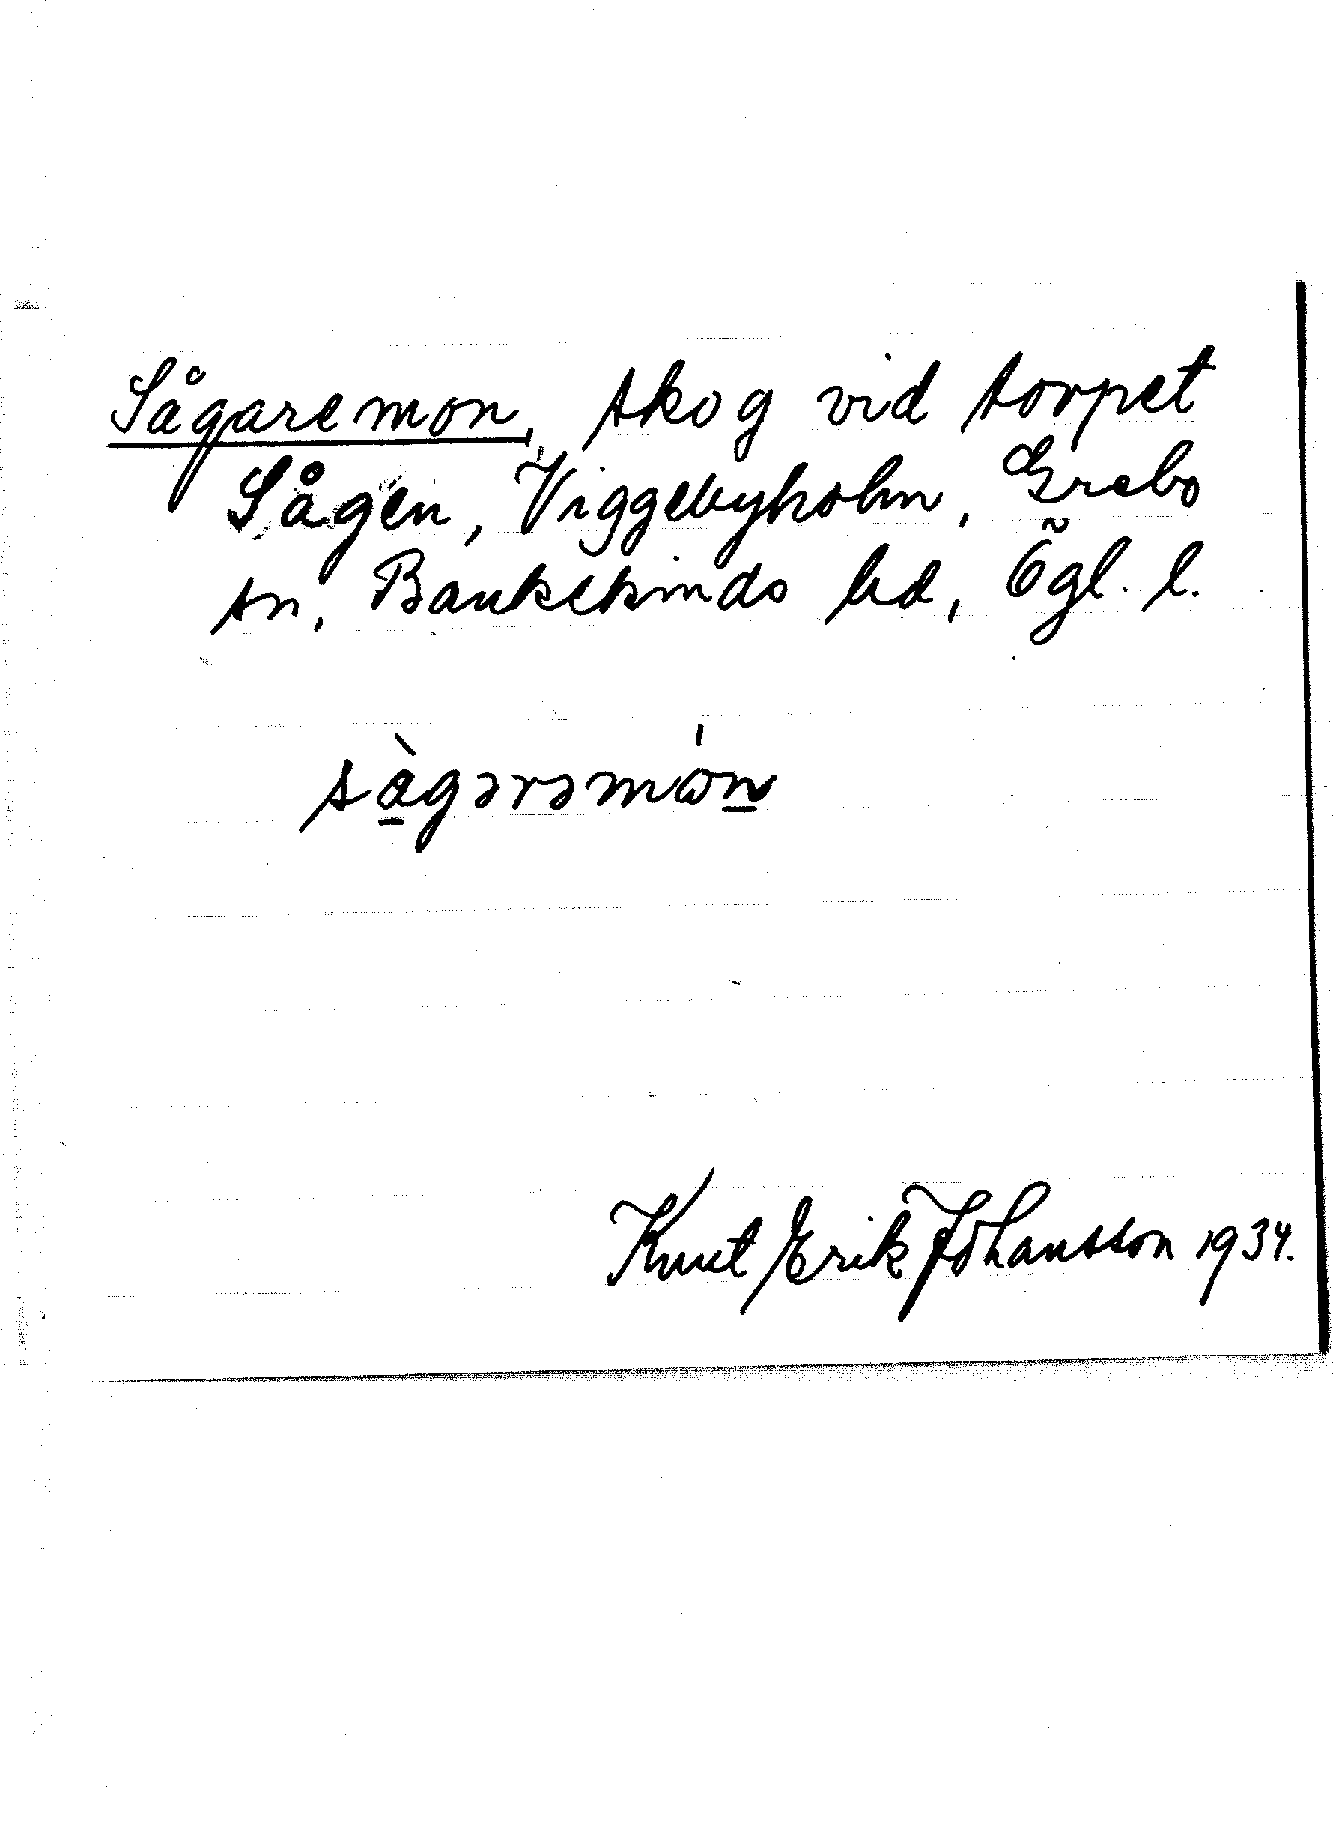 Sågaremon, skog vid torpet
Sågen, Viggebyholm, Grebo
sn, Bankekinds hd, Ögl. l.
sàgərəmωń
Knut Erik Johansson 1934.